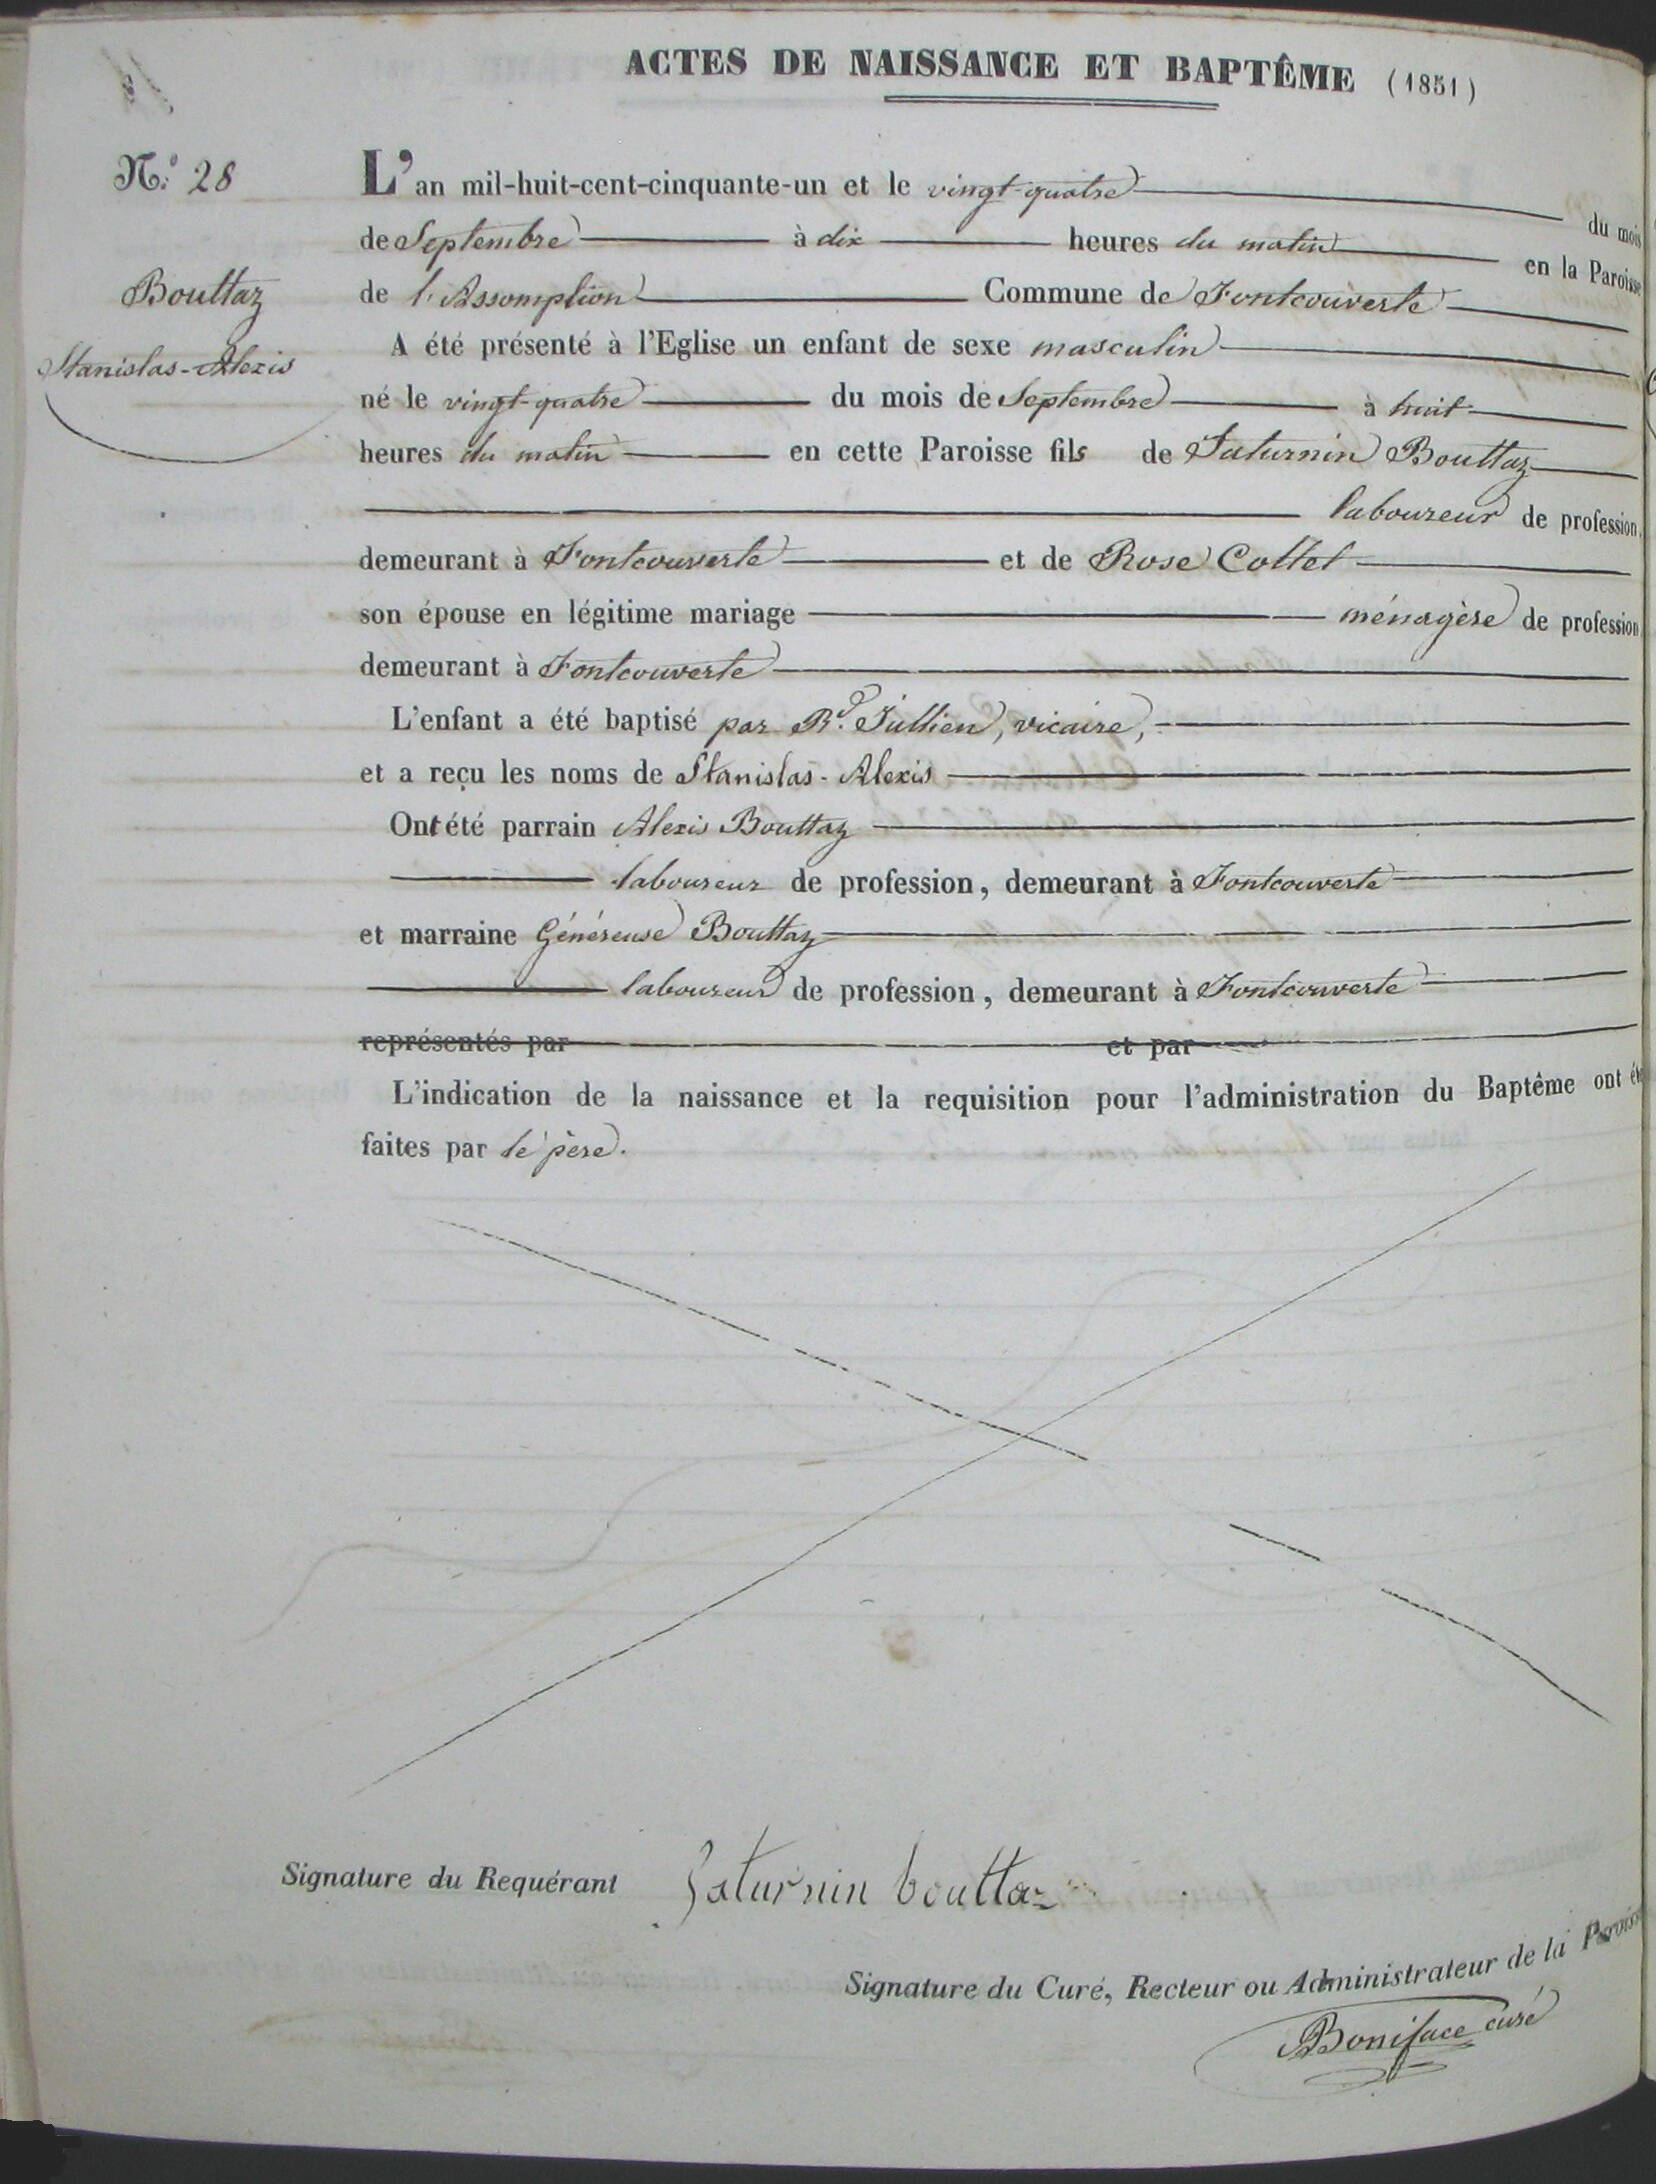 ACTES DE NAISSANCE ET BAPTÊME (1851)
N.° 28
L'an mil-huit-cent-cinquante-un et le vingt-quatre du mois
de Septembre à dix heures du matin en la Paroisse
Bouttaz
de l'Assomption Commune de Fontcouverte
Stanislas-Alexis
A été présenté à l'Eglise un enfant de sexe masculin
né le vingt-quatre du mois de Septembre à huit
heures du matin en cette Paroisse fils de Saturnin Bouttaz
laboureur de profession,
demeurant à Fontcouverte et de Rose Collet
son épouse en légitime mariage ménagère de profession
demeurant à Fontcouverte
L'enfant a été baptisé par Rd. Jullien, vicaire,
et a reçu les noms de Stanislas-Alexis
Ont été parrain Alexis Bouttaz
laboureur de profession, demeurant à Fontcouverte
et marraine Généreuse Bouttaz
laboureur de profession, demeurant à Fontcouverte
représentés par et par
L'indication de la naissance et la requisition pour l'administration du Baptême ont été
faites par le père.
Signature du Requérant Saturnin bouttaz
Signature du Curé, Recteur ou Administrateur de la Paroisse
Boniface curé